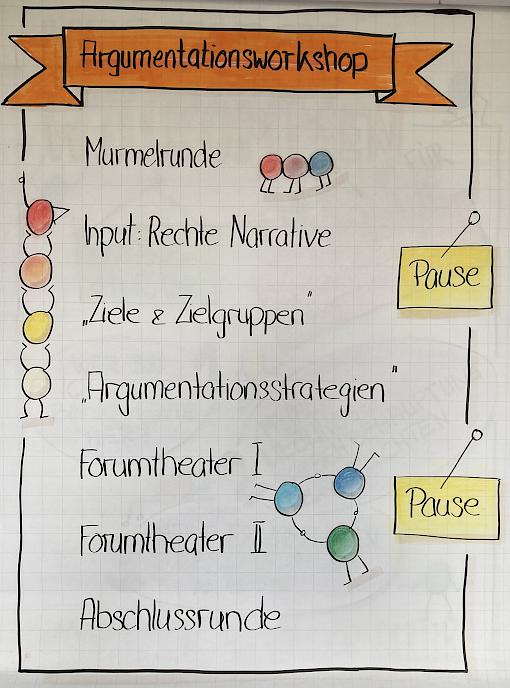 Argumentationsworkshop
Murmelrunde
Input: Rechte Narrative
Pause
„Ziele & Zielgruppen"
„Argumentationsstrategien"
Forumtheater I
Pause
Forumtheater II
Abschlussrunde